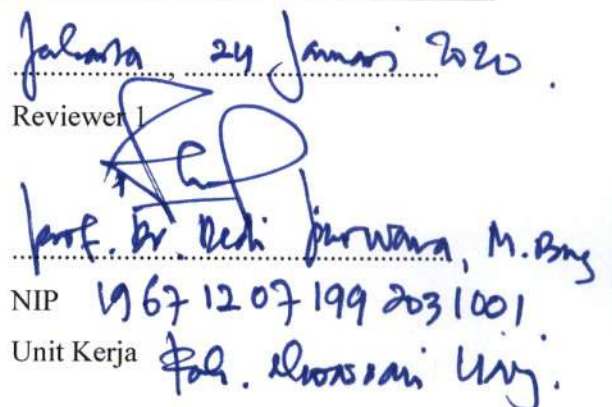 Jakarta, 24 Januari 2020.
Reviewer 1
Prof. Dr. Dedi Purwana, M.Bus
NIP 196712071992031001
Unit Kerja Fak. Ekonomi UNJ.